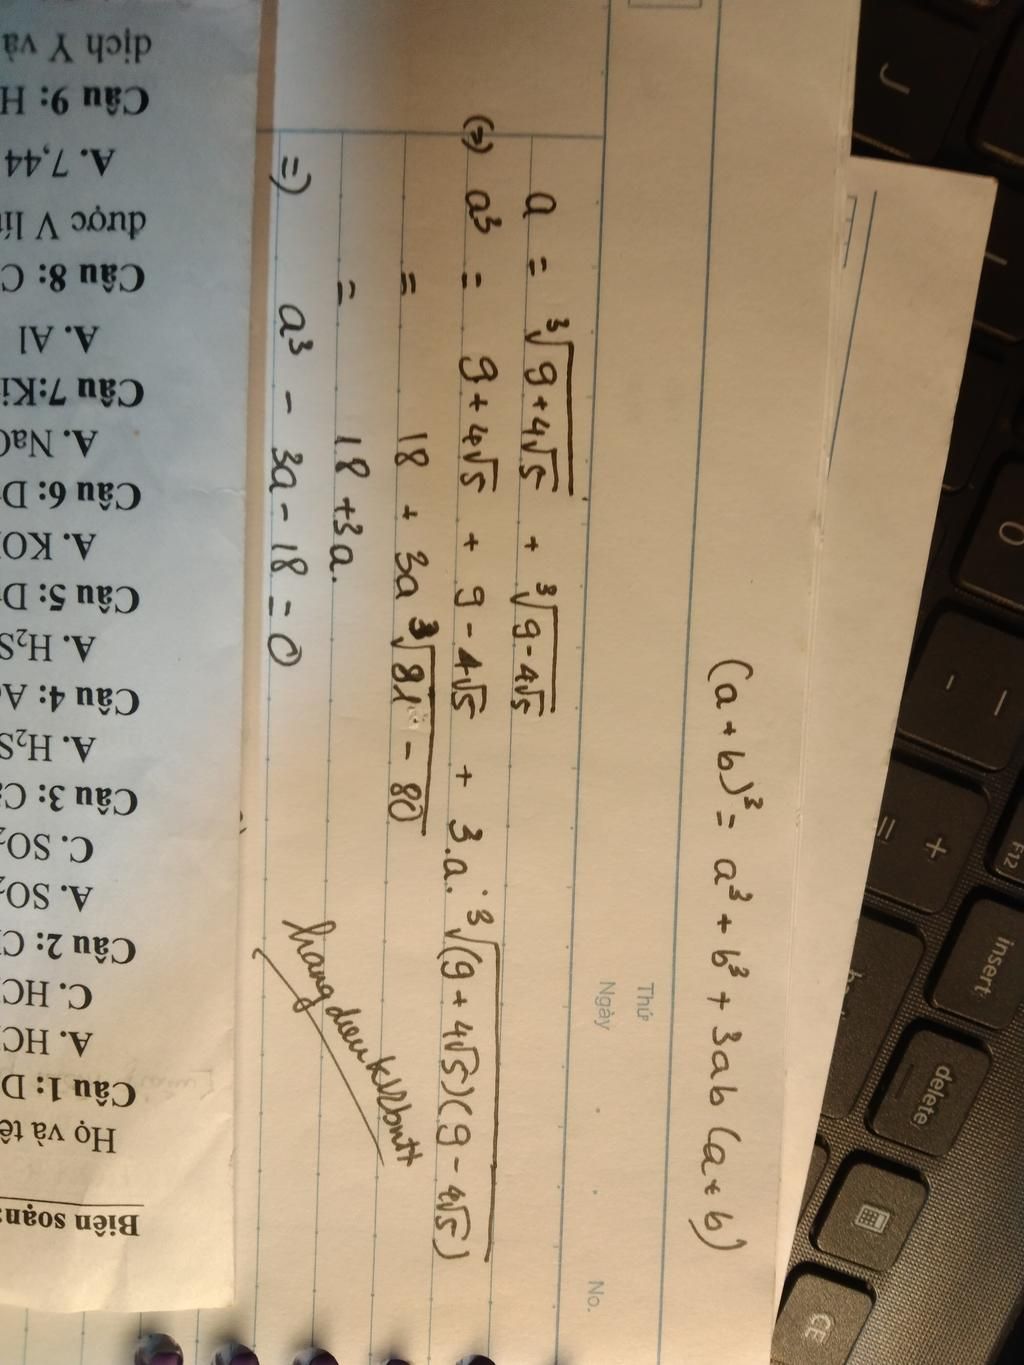 (a + b)³ = a³ + b³ + 3ab (a + b)
Thứ
Ngày
No.
a = ³√9+4√5 + ³√9-4√5
(=) a³ = 9+4√5 + 9-4√5 + 3.a.³√(9+4√5)(9-4√5)
= 18 + 3a ³√81-80
= 18 +3a.
=) a³ - 3a - 18 = 0
Biên soạn:
Họ và tê
Câu 1: D
A. HC
C. HC
Câu 2: C
A. SO₂
C. SO₂
Câu 3: C
A. H₂S
Câu 4: A
A. H₂S
Câu 5: D
A. KO
Câu 6: D
A. NaO
Câu 7: Ki
A. Al
Câu 8: C
được V lí
A. 7,44
Câu 9: H
dịch Y và
J
O
-
+
=
F12
insert
delete
CE